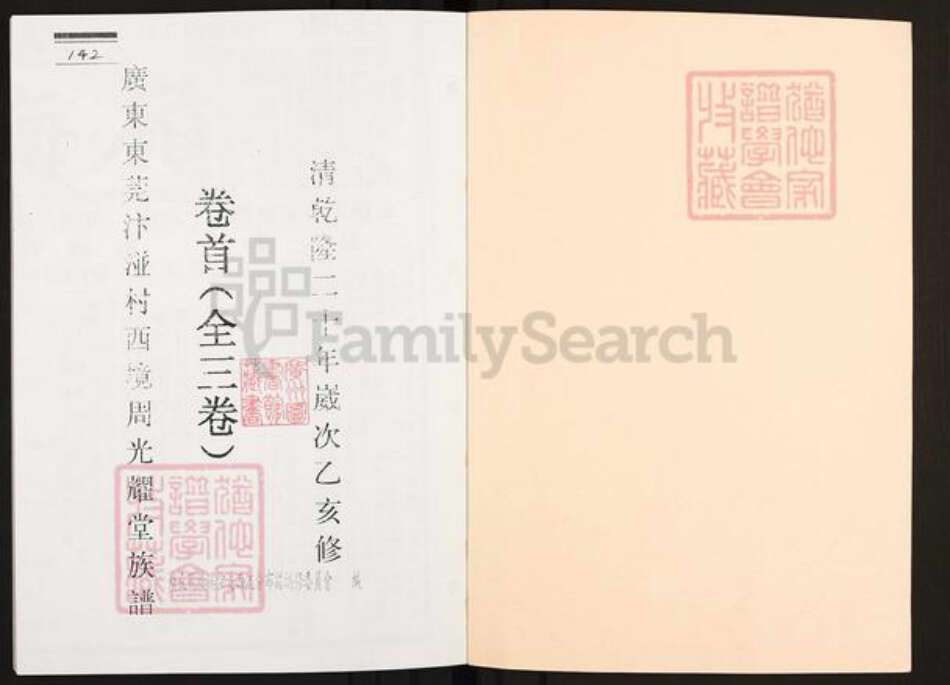 142
清乾隆二十年歲次乙亥修
卷首(全三卷)
廣東東莞汴塰村西境周光耀堂族譜
廣州圖書館藏書
猶他家譜學會收藏
猶他家譜學會收藏
FamilySearch